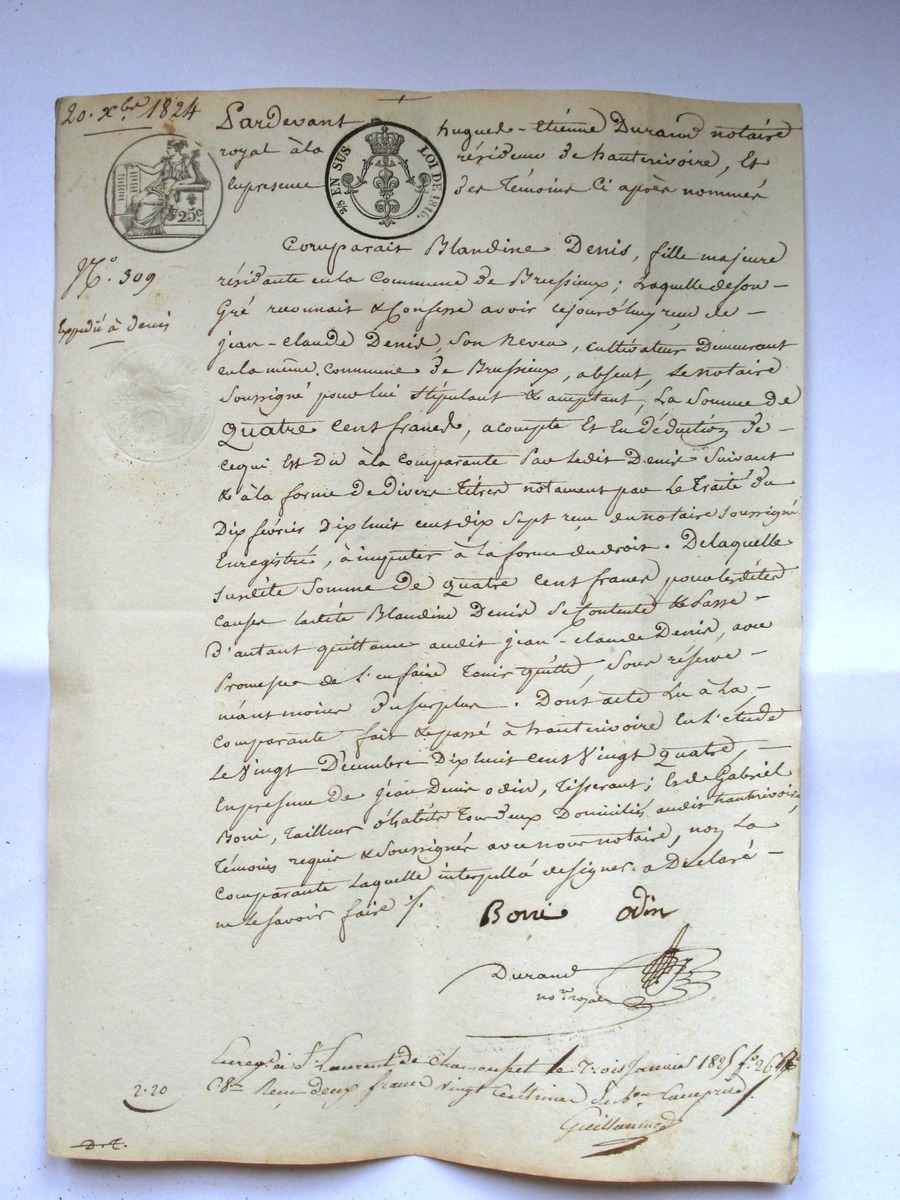 20. xbre 1824
Pardevant hugues-Etiénne Durand notaire
royal à la résidence de hauterivoire, Et
En presence des Témoins Ci après nommés
2/5 EN SUS LOI DE 1816.
25c
N° 309
Expedié à denis
Comparait Blandine Denis, fille majeure
résidante en la Commune de Brussieux; Laquelle de son-
Gré reconnait & Confesse avoir cejourd'huy reçu de-
jean-claude Denis, Son Neveu, cultivateur Demeurant
en la même Commune de Brussieux, absent, Le notaire
Soussigné pour lui stipulant & acceptant, La Somme de
Quatre Cent francs, acompte Et En déduction de-
ce qui Est dû à la Comparante Par Ledit Denis Suivant
& à la forme de divers titres notament par Le Traité du
Dix février Dix huit cent dix Sept reçu du notaire Soussigné
Enregistré, à imputer à la forme du droit. De laquelle
susdite Somme de quatre Cent francs pour lesdites
Causes ladite Blandine Denis Se Contente & Passe-
D'autant quittance audit jean-claude Denis, avec
Promesse de L'en faire Tenir quitte, Sous réserve-
néantmoins du surplus. Dont acte Lu à La-
Comparante fait & passé à hauterivoire En L'étude
Le Vingt Décembre Dix huit Cent Vingt quatre,-
En presence de jean Denis odin, Tisserant; Et de Gabriel
Boni, Tailleur d'habits Tous deux Domiciliés audit hauterivoire,
Témoins requis & Soussignés avec nous notaire, non La
Comparante Laquelle interpellé de signer a Déclaré-
ne le savoir faire ./.
Boni odin
Durand
nore royal
Enregé à St Laurent de Chamousset le Trois Janvier 1825 f° 26
C. 8 Reçu deux francs vingt Centimes Subon Compris
2.20
Guillaumod
D.T.